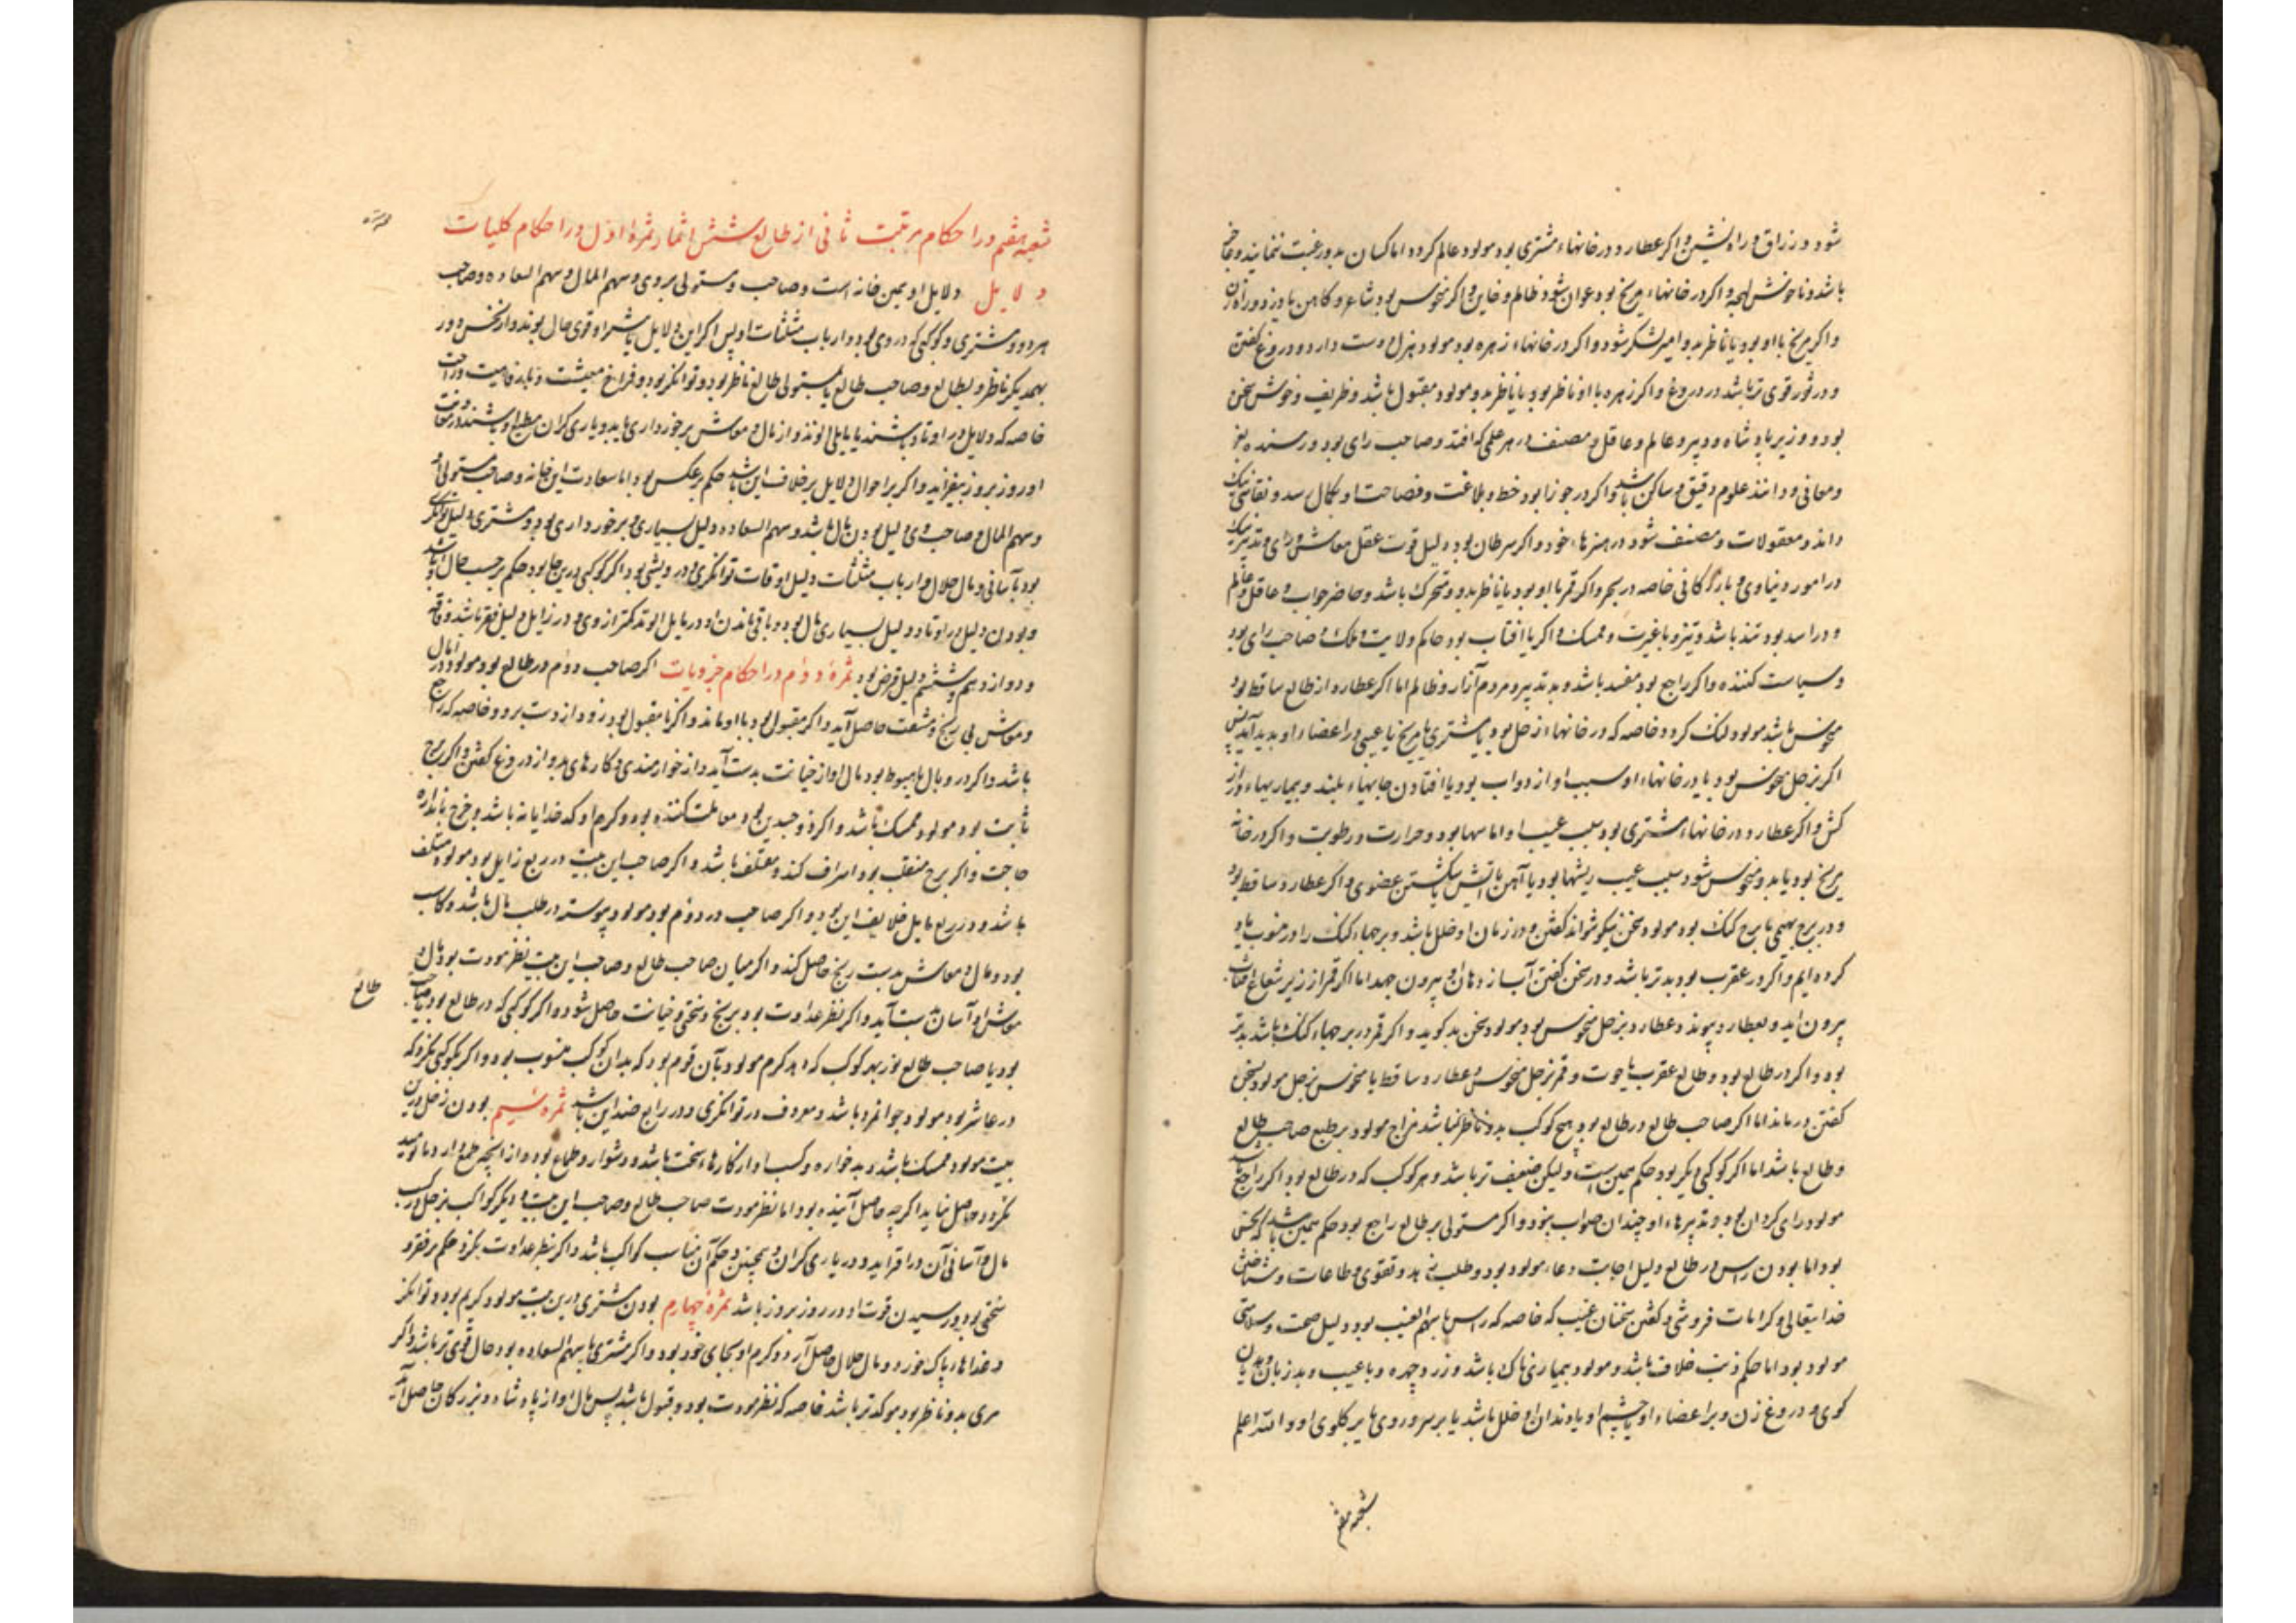 شود و رزاق و راه نشین و اگر عطارد در خانهاء مشتری بود مولود عالم گردد اما کسان بدو رغبت ننمایند و
باشد و ناخوش لهجه و اگر در خانهاء مریخ بود عوان شود و ظالم و خاین و اگر منحوس بود شاعر و کاهن یا دزد و راه زن
و اگر مریخ با او بود یا ناظر بدو امیر لشکر شود و اگر در خانهاء زهره بود مولود هزل دوست دارد و دروغ گفتن
و در ثور قوی تر باشد در دروغ و اگر زهره با او ناظر بود یا ناظر بدو مولود مقبول باشد و ظریف و خوش سخن
بود و وزیر پادشاه و دبیر و عالم و عاقل و مصنف در هر علمی که افتد و صاحب رای بود و رسنده به
و معانی و دانند علوم دقیق و ساکن باشد و اگر در جوزا بود خط و بلاغت و فصاحت او بکمال رسد و نقاشی نیک
داند و معقولات و مصنف شود در هنرهاء خود و اگر سرطان بود دلیل قوت عقل معاش و رای و تدبیر نیک
در امور دنیاوی و بازرگانی خاصه در بحر و اگر قمر با او بود یا ناظر بدو و متحرک باشد و حاضر جواب و عاقل و عالم
و در اسد بود تند باشد و تیز و با غیرت و ممسک و اگر با آفتاب بود حاکم ولایت و ملک و صاحب رای بود
و سیاست کننده و اگر راجع بود مفسد باشد و بد تدبیر و مردم آزار و ظالم اما اگر عطارد از طالع ساقط بود
منحوس باشد مولود لنگ گردد خاصه که در خانهاء زحل بود یا مشتری یا مریخ یا عیبی در اعضاء او پدید آید پس
اگر بزحل منحوس بود یا در خانهاء او سبب او از دواب بود یا افتادن جایهاء بلند و بیماریهاء دراز
کش و اگر عطارد در خانهاء مشتری بود سبب عیب او اماسها بود و حرارت و رطوبت و اگر در خانه
مریخ بود یا بدو منحوس شود سبب عیب ریشها بود یا آهن یا آتش یا شکستن عضوی و اگر عطارد ساقط بود
و در برج بهیمی یا برج گنگ بود مولود سخن نیکو نتواند گفتن و در زمان او خلل باشد و برجهاء گنگ را در منوب یاد
کرده ایم و اگر در عقرب بود بدتر باشد و در سخن گفتن آب از دهان او بیرون جهد اما اگر قمر از زیر شعاع آفتاب
بیرون آید و بعطارد پیوندد و عطارد بزحل منحوس بود مولود سخن بد گوید و اگر قمر در برجهاء گنگ باشد بدتر
بود و اگر در طالع بود و طالع عقرب یا حوت و قمر بزحل منحوس و عطارد ساقط یا منحوس بزحل مولود بسخن
گفتن درماند اما اگر صاحب طالع در طالع بود و هیچ کوکب بدو ناظر نباشد مزاج مولود بر طبع صاحب طالع
و طالع باشد اما اگر کوکبی دیگر بود حکم همین است ولیکن ضعیف تر باشد و هر کوکب که در طالع بود اگر راجع باشد
مولود رای گردان بود و تدبیرهاء او چندان صواب نبود و اگر مستولی بر طالع راجع بود حکم همین باشد که
بود اما بودن راس در طالع دلیل اجابت دعاء مولود بود و طلب زهد و تقوی و طاعات و شناختن
خدایتعالی و کرامات فروشی و گفتن سخنان غیب که خاصه که راس با سهم الغیب بود و دلیل صحت و سلامتی
مولود بود اما حکم ذنب خلاف باشد و مولود بیماری ناک باشد و زرد چهره و با عیب و بد زبان و هذیان
گوی و دروغ زن و بر اعضاء او یا چشم او یا دندان او خلل باشد یا بر سر و روی یا بر گلوی او و الله اعلم
شعبه هفتم
شعبه هفتم در احکام مرتبت ثانی از طالع شش اثمار ثمره اول در احکام کلیات
دلایل دلایل او همین خانه است و صاحب و مستولی بر وی و سهم المال و سهم السعاده و صاحب
هر دو و مشتری و کوکبی که در وی بود و ارباب مثلثات او پس اگر این دلایل یا بیشتر او قوی حال بوند و از نحس دور
بهمدیگر ناظر و بطالع و صاحب طالع یا بمستولی طالع ناظر بود و توانگر بود و فراخ معیشت و با رفاهیت و راحت
خاصه که دلایل در اوتاد باشند یا مایلی الوتد و از مال و معاش برخورداری یابد و یاری گران مطیع او باشند و
او روز بروز بیفزاید و اگر بر احوال دلایل برخلاف این باشد حکم بر عکس بود اما سعادت این خانه و صاحب مستولی او
و سهم المال و صاحب وی دلیل بودن مال باشد و سهم السعاده دلیل بسیاری و برخورداری بود و مشتری دلیل توانگری
بود بآسانی و مال حلال و ارباب مثلثات دلیل اوقات توانگری و درویشی بود اگر کوکبی درین جا بود حکم بر حسب حال او باشد
و بودن دلیل در اوتاد دلیل بسیاری مال بود و باقی ماندن او و در مایل الوتد کمتر از وی و در زایل دلیل فقر باشد و فاقه
و دوازدهم و ششم دلیل قرض بود ثمره دوم در احکام جزویات اگر صاحب دوم در طالع بود مولود را مال
و معاش بی رنج و مشقت حاصل آید و اگر مقبول بود با او ماند و اگر نا مقبول بود زود از دست برود خاصه که راجع
باشد و اگر در وبال یا هبوط بود مال او از خیانت بدست آید و از خوارمندی و کارهای بد و از دروغ گفتن و اگر برج
ثابت بود مولود ممسک باشد و اگر ذوجسدین بود معاملت کننده بود و کرم او کدخدایانه باشد و خرج باندازه
حاجت و اگر برج منقلب بود اسراف کند و متلف باشد و اگر صاحب این بیت در ربع زایل بود مولود متلف
باشد و در ربع مایل خلاف این بود و اگر صاحب در دوم بود مولود پیوسته در طلب مال باشد و کاسب
بود و مال و معاش بدست رنج حاصل کند و اگر میان صاحب طالع و صاحب این بیت نظر مودت بود مال و
معاش او آسان بدست آید و اگر نظر عداوت بود برنج و سختی و خیانت حاصل شود و اگر کوکبی که در طالع بود صاحب
طالع
بود یا صاحب طالع نور بهر کوکب که دهد کرم مولود بآن قوم بود که بدان کوکب منسوب بود و اگر بکوکبی نگرد که
در عاشر بود مولود جوانمرد باشد و معروف در توانگری و در رابع ضد این باشد ثمره سیم بودن زحل درین
بیت مولود ممسک باشد و بدخواره و کسب او از کارهاء سخت باشد و دشوار و طماع بود و از آنچه طمع دارد نا امید
گردد و حاصل نیاید اگرچه حاصل آینده بود اما نظر مودت صاحب طالع و صاحب این بیت و دیگر کواکب بزحل در کسب
مال و آسانی آن در افزاید و در یاری گران و همچنین و حکم آن مناسب کواکب باشد و اگر بنظر عداوت نگرد حکم بر فقر و
سختی بود و رسیدن قوت او در روز بروز باشد ثمره چهارم بودن مشتری درین بیت مولود کریم بود و توانگر
و غذاهاء پاک خورد و مال حلال حاصل آرد و کرم او بجای خود بود و اگر مشتری با سهم السعاده بود حال قوی تر باشد و اگر
مری بدو ناظر بود موکدتر باشد خاصه که نظر مودت بود و قبول باشد پس مال او از پادشاه و بزرگان حاصل آید